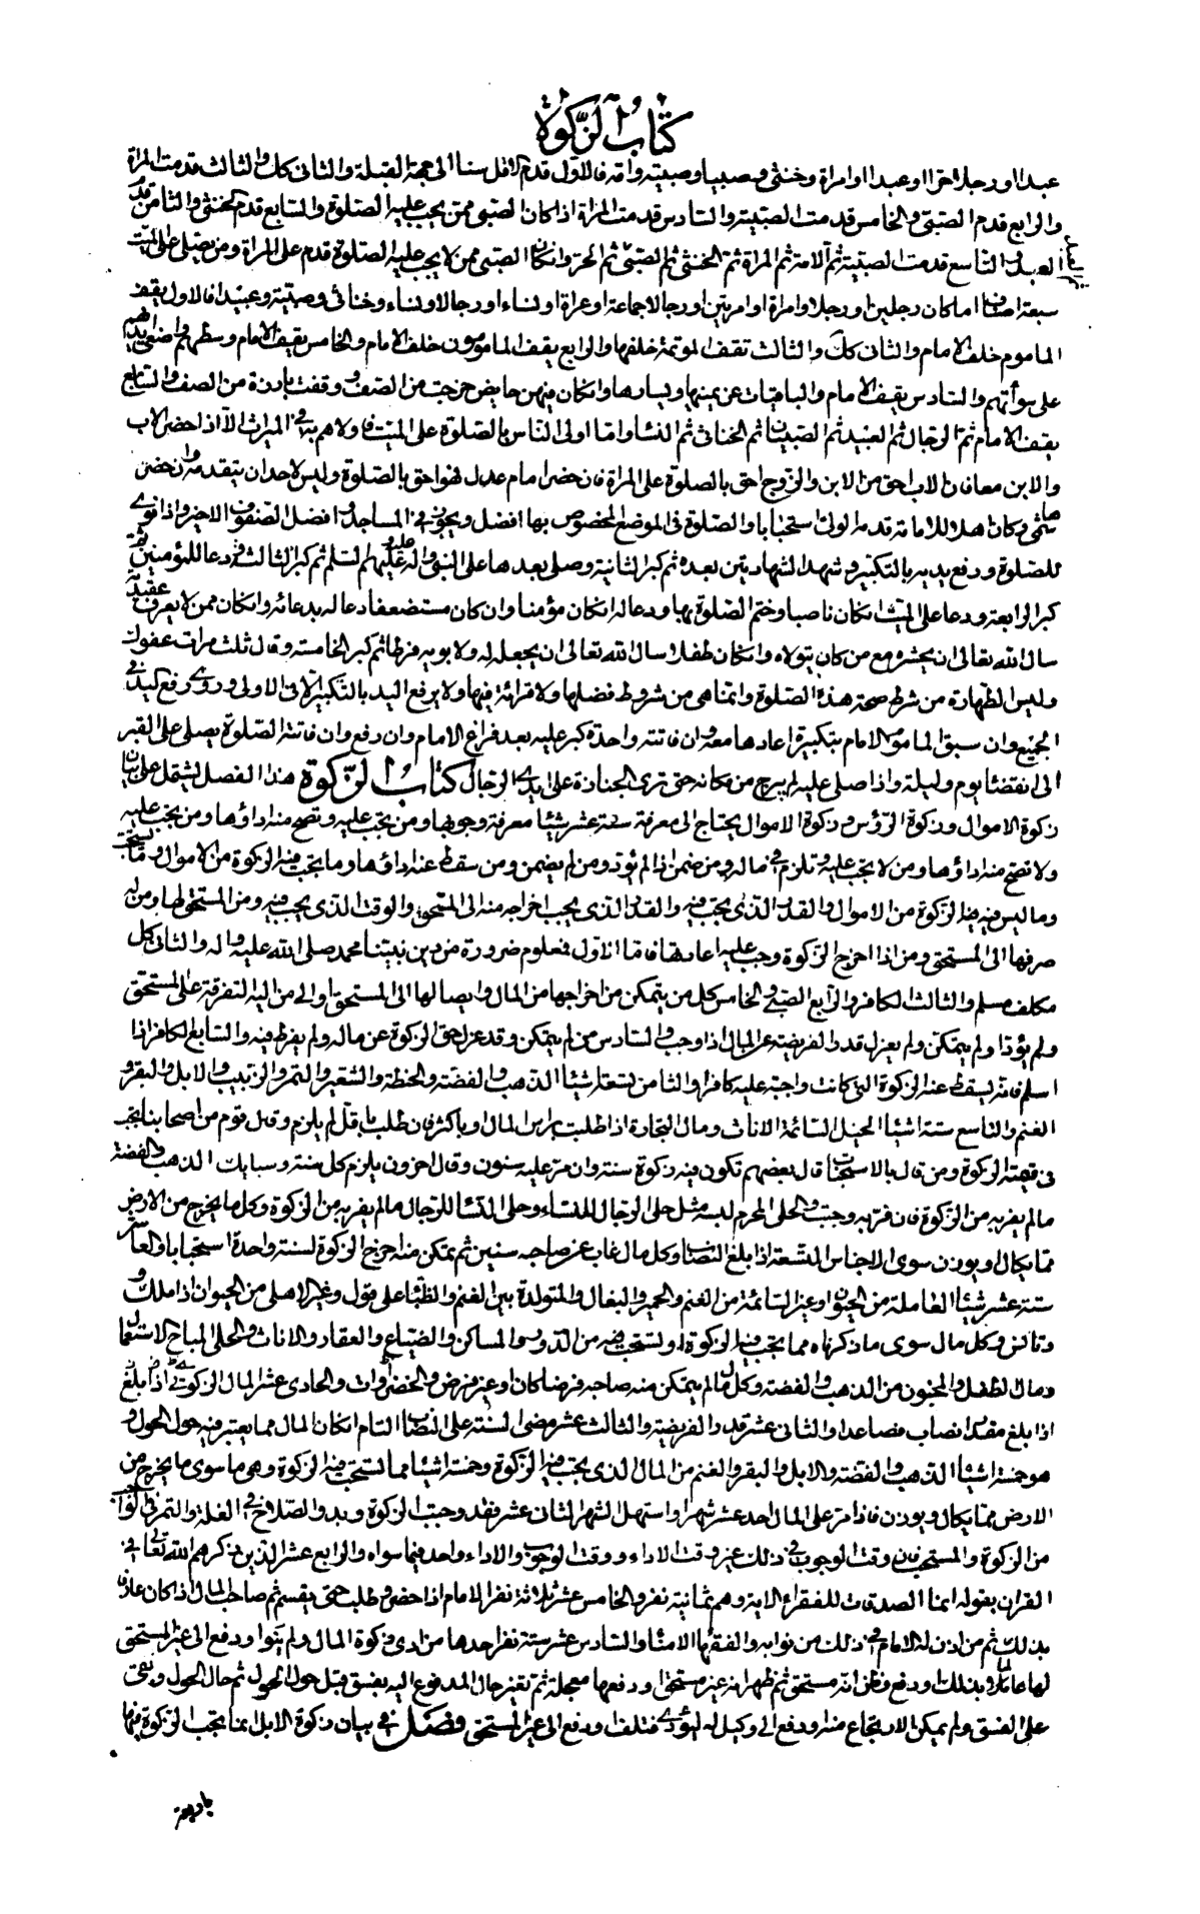 كتاب الزكوة
عبدا او رجلا حرا او عبدا او امراة وخنثى وصبيا وصبية وامة فالاول قدم الافضل سنا الى جهة القبلة والثانى كك والثالث قدمت المراة
والرابع قدم الصبى والخامس قدمت الصبية والسادس قدمت المراة اذا كان الصبى ممن يجب عليه الصلوة والسابع قدم الخنثى والثامن قدم
العبد والتاسع قدمت الصبية ثم الامة ثم المراة ثم الخنثى ثم الصبى ثم الحر وان كان الصبى ممن لا يجب عليه الصلوة قدم على المراة ومن يصلى على الميت
سبعة اصناف اما كان رجلين او رجلا وامراة او امرتين او رجالا جماعة او عراة او نساء او رجالا ونساء وخناثى وصبية وعبيدا فالاول يقف
الماموم خلف الامام والثانى كك والثالث تقف المؤتمة خلفها والرابع يقف المامومون خلف الامام والخامس يقف الامام وسطهم واضعى ايديهم
على سوأتهم والسادس يقف الامام والباقيات عن يمينها ويسارها وان كان فيهن حايض خرجت من الصف ووقفت بارزة من الصف والسابع
يقف الامام ثم الرجال ثم العبيد ثم الصبيان ثم الخناثى ثم النساء واما اولى الناس بالصلوة على الميت فاولاهم به فى الميراث الا اذا حضر الاب
والابن معا فان الاب احق من الابن والزوج احق بالصلوة على المراة فان حضر امام عدل فهو احق بالصلوة وليس لاحد ان يتقدمه وان حضر
هاشمى وكان اهلا للامامة قدمه الولى استحبابا والصلوة فى الموضع المخصوص بها افضل ويجوز فى المساجد وافضل الصفوف الاخير واذا نوى
للصلوة ورفع يديه بالتكبير وشهد الشهادتين بعده ثم كبر الثانية وصلى بعدها على النبى واله عليه وعليهم السلم ثم كبر الثالثة ودعا للمؤمنين ثم
كبر الرابعة ودعا على الميت ان كان ناصبا وختم الصلوة بها ودعا له ان كان مؤمنا وان كان مستضعفا دعا له بدعائه وان كان ممن لا يعرف عقيدته
سال الله تعالى ان يحشره مع من كان يتولاه وان كان طفلا سال الله تعالى ان يجعله له ولابويه فرطا ثم كبر الخامسة وقال ثلث مرات عفوك
وليس الطهارة من شرط صحة هذه الصلوة وانما هى من شروط فضلها ولا قرائة فيها ولا يرفع اليد بالتكبير الا فى الاولى وروى رفع اليد فى
الجميع وان سبق الماموم الامام بتكبيرة اعادها معه وان فاتته واحدة كبر عليه بعد فراغ الامام وان رفع وان فاتته الصلوة يصلى على القبر
الى انقضاء يوم وليلة واذا صلى عليه لم يبرح من مكانه حتى ترى الجنازة على ايدى الرجال كتاب الزكوة هذا الفصل يشتمل على بيان
زكوة الاموال وزكوة الرؤس وزكوة الاموال يحتاج الى معرفة ستة عشر شيئا معرفة وجوبها ومن يجب عليه وتصح منه اداؤها ومن يجب عليه
ولا تصح منه اداؤها ومن لا يجب عليه وتلزم فى ماله ومن ضمن اذا لم يؤد ومن لم يضمن ومن سقط عنه اداؤها وما يجب فيه الزكوة من الاموال وما يستحب
وما ليس فيه الزكوة من الاموال والقدر الذى يجب فيه والقدر الذى يجب اخراجه منه الى المستحق والوقت الذى يجب فيه ومن المستحق لها ومن له
صرفها الى المستحق ومن اذا اخرج الزكوة وجب عليه اعادتها فاما الاول فمعلوم ضرورة من دين نبينا محمد صلى الله عليه واله والثانى كل
مكلف مسلم والثالث الكافر والرابع الصبى والخامس كل من يتمكن من اخراجها من المال وايصالها الى المستحق او الى من اليه التفرقة على المستحق
ولم يؤد او لم يتمكن ولم يعزل قدر الفريضة عن المال اذا وجب والسادس من لم يتمكن وقد عزل حق الزكوة عن ماله ولم يفرط فيه والسابع الكافر اذا
اسلم فانه يسقط عنه الزكوة التى كانت واجبة عليه كافرا والثامن تسعة اشياء الذهب والفضة والحنطة والشعير والتمر والزبيب والابل والبقر و
الغنم والتاسع ستة اشياء الخيل السائمة الاناث ومال التجارة اذا طلبت براس المال او باكثر فان طلب باقل لم يلزم وقال قوم من اصحابنا يجب
فى قيمته الزكوة ومن قال بالاستحباب قال بعضهم تكون فيه زكوة سنة وان مر عليه سنون وقال اخرون يلزم كل سنة وسبايك الذهب والفضة
ما لم يفر به من الزكوة فان فر به وجبت والحلى المحرم لبسه مثل حلى الرجال للنساء وحلى النساء للرجال ما لم يفر به من الزكوة وكل ما يخرج من الارض
مما يكال او يوزن سوى الاجناس التسعة اذا بلغ النصاب وكل مال غاب عن صاحبه سنين ثم يمكن منه اخرج الزكوة لسنة واحدة استحبابا والعاشر
ستة عشر شيئا العاملة من الحيوان وغير السائمة من الغنم والحمير والبغال والمتولدة بين الغنم والظباء على قول وغير الاهلى من الحيوان اذا ملك و
وتانس وكل مال سوى ما ذكرناه مما يجب فيه الزكوة او تستحب فيه من الدور والمساكن والضياع والعقار والاثاث والحلى المباح الاستعمال
ومال الطفل والمجنون من الذهب والفضة وكل مال لم يتمكن منه صاحبه قرضا كان او غير قرض والخضراوات والحادى عشر المال الزكوى اذا بلغ
اذا بلغ مقدار نصاب فصاعدا والثانى عشر قدر الفريضة والثالث عشر مضى السنة على النصاب التام ان كان المال مما يعتبر فيه حول الحول و
هو خمسة اشياء الذهب والفضة والابل والبقر والغنم من المال الذى يجب فيه الزكوة وخمسة اشياء مما تستحب فيه الزكوة وهى ما سوى ما يخرج من
الارض مما يكال ويوزن فاذا مر على المال احد عشر شهرا واستهل الشهر الثانى عشر فقد وجبت الزكوة وبدو الصلاح فى الغلة والتمر فى الواجب
من الزكوة والمستحب فان وقت الوجوب فى ذلك غير وقت الاداء ووقت الوجوب والاداء واحد فيما سواه والرابع عشر الذين ذكرهم الله تعالى فى
القران بقوله انما الصدقات للفقراء الاية وهم ثمانية نفر والخامس عشر ثلاثة نفر الامام اذا حضر وطلب حتى يقسم ثم صاحب المال اذا كان عارفا
بذلك ثم من اذن له الامام فى ذلك من نوابه والفقهاء الامناء والسادس عشر ستة نفر احدها من ادى زكوة المال ولم ينوا ودفع الى غير المستحق
لها عالما بذلك او دفع وظن انه مستحق ثم ظهر انه غير مستحق او دفعها معجلة ثم تغير حال المدفوع اليه بفسق قبل حول الحول ثم حال الحول وبقى
على الفسق ولم يمكن الارتجاع منه او دفع الى وكيل له ليؤدى فتلف او دفع الى غير المستحق فصل فى بيان زكوة الابل انما يجب الزكوة فيها
باربعة